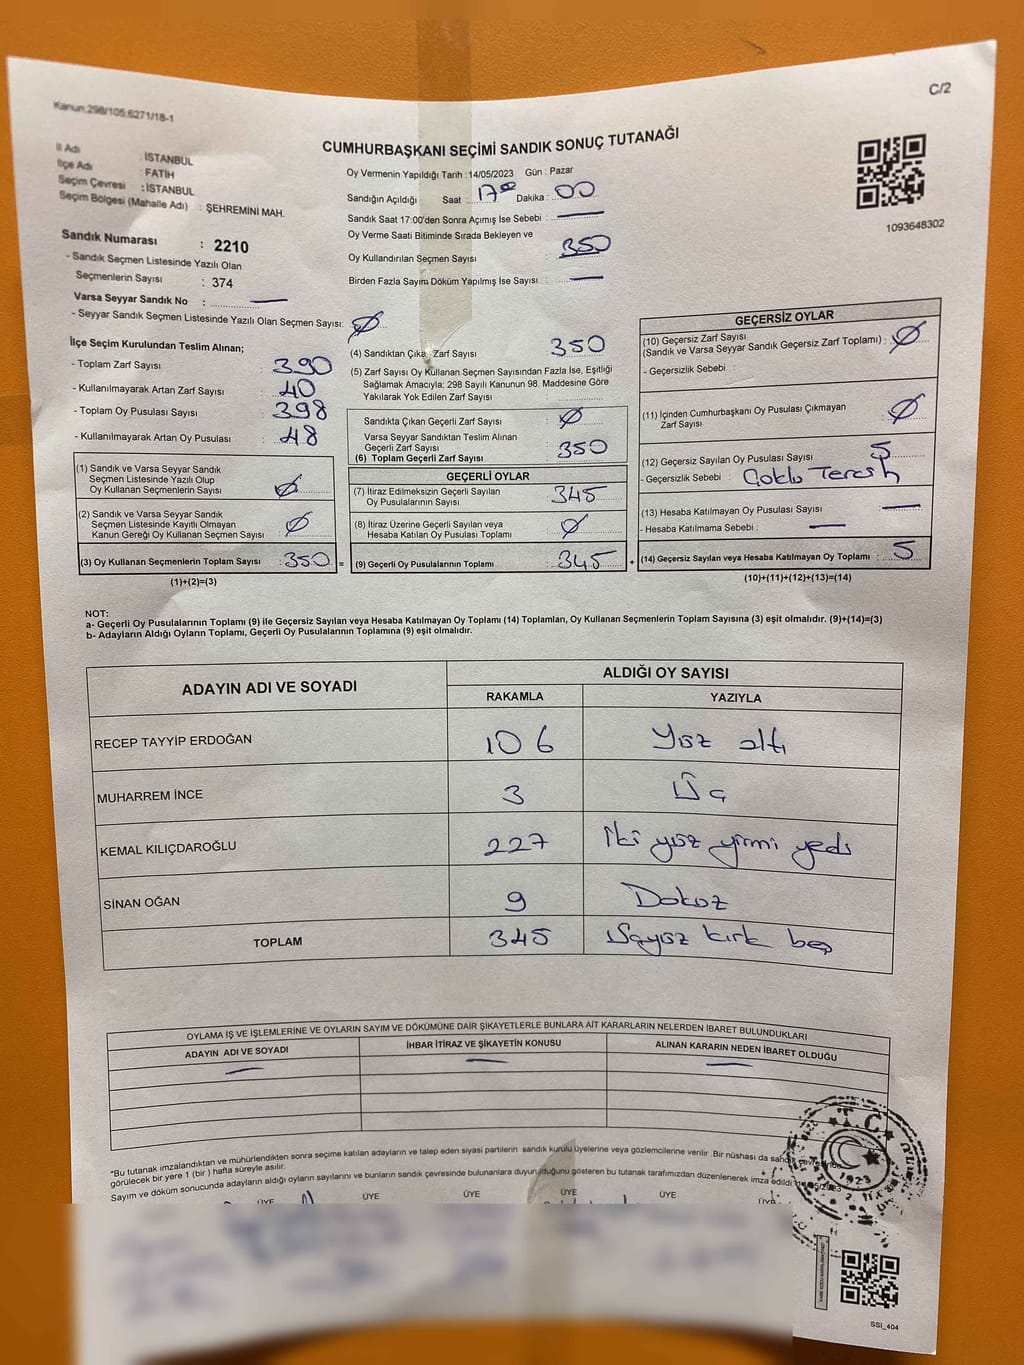 C/2
Kanun:298/105;6271/18-1
CUMHURBAŞKANI SEÇİMİ SANDIK SONUÇ TUTANAĞI
İl Adı : İSTANBUL
İlçe Adı : FATİH
Seçim Çevresi : İSTANBUL
Seçim Bölgesi (Mahalle Adı) : ŞEHREMİNİ MAH.
Sandık Numarası : 2210
- Sandık Seçmen Listesinde Yazılı Olan
Seçmenlerin Sayısı : 374
Varsa Seyyar Sandık No : —
- Seyyar Sandık Seçmen Listesinde Yazılı Olan Seçmen Sayısı: Ø
Oy Vermenin Yapıldığı Tarih : 14/05/2023 Gün : Pazar
Sandığın Açıldığı Saat : 17⁰⁰ Dakika : 00
Sandık Saat 17:00'den Sonra Açımış İse Sebebi : —
Oy Verme Saati Bitiminde Sırada Bekleyen ve
Oy Kullandırılan Seçmen Sayısı : 350
Birden Fazla Sayım Döküm Yapılmış İse Sayısı : —
1093648302
İlçe Seçim Kurulundan Teslim Alınan;
- Toplam Zarf Sayısı : 390
- Kullanılmayarak Artan Zarf Sayısı : 40
- Toplam Oy Pusulası Sayısı : 398
- Kullanılmayarak Artan Oy Pusulası : 48
(1) Sandık ve Varsa Seyyar Sandık
Seçmen Listesinde Yazılı Olup
Oy Kullanan Seçmenlerin Sayısı : Ø
(2) Sandık ve Varsa Seyyar Sandık
Seçmen Listesinde Kayıtlı Olmayan
Kanun Gereği Oy Kullanan Seçmen Sayısı : Ø
(3) Oy Kullanan Seçmenlerin Toplam Sayısı : 350 =
(1)+(2)=(3)
(4) Sandıktan Çıkan Zarf Sayısı : 350
(5) Zarf Sayısı Oy Kullanan Seçmen Sayısından Fazla İse, Eşitliği
Sağlamak Amacıyla; 298 Sayılı Kanunun 98. Maddesine Göre
Yakılarak Yok Edilen Zarf Sayısı :
Sandıkta Çıkan Geçerli Zarf Sayısı : Ø
Varsa Seyyar Sandıktan Teslim Alınan
Geçerli Zarf Sayısı : 350
(6) Toplam Geçerli Zarf Sayısı
GEÇERLİ OYLAR
(7) İtiraz Edilmeksizin Geçerli Sayılan
Oy Pusulalarının Sayısı : 345
(8) İtiraz Üzerine Geçerli Sayılan veya
Hesaba Katılan Oy Pusulası Toplamı : Ø
(9) Geçerli Oy Pusulalarının Toplamı : 345 +
GEÇERSİZ OYLAR
(10) Geçersiz Zarf Sayısı
(Sandık ve Varsa Seyyar Sandık Geçersiz Zarf Toplamı) : Ø
- Geçersizlik Sebebi :
(11) İçinden Cumhurbaşkanı Oy Pusulası Çıkmayan
Zarf Sayısı : Ø
(12) Geçersiz Sayılan Oy Pusulası Sayısı : 5
- Geçersizlik Sebebi : Çoklu Tercih
(13) Hesaba Katılmayan Oy Pusulası Sayısı : —
- Hesaba Katılmama Sebebi : —
(14) Geçersiz Sayılan veya Hesaba Katılmayan Oy Toplamı : 5
(10)+(11)+(12)+(13)=(14)
NOT:
a- Geçerli Oy Pusulalarının Toplamı (9) ile Geçersiz Sayılan veya Hesaba Katılmayan Oy Toplamı (14) Toplamları, Oy Kullanan Seçmenlerin Toplam Sayısına (3) eşit olmalıdır. (9)+(14)=(3)
b- Adayların Aldığı Oyların Toplamı, Geçerli Oy Pusulalarının Toplamına (9) eşit olmalıdır.
ADAYIN ADI VE SOYADI ALDIĞI OY SAYISI
RAKAMLA YAZIYLA
RECEP TAYYİP ERDOĞAN 106 Yüz altı
MUHARREM İNCE 3 Üç
KEMAL KILIÇDAROĞLU 227 İki yüz yirmi yedi
SİNAN OĞAN 9 Dokuz
TOPLAM 345 Üçyüz kırk beş
OYLAMA İŞ VE İŞLEMLERİNE VE OYLARIN SAYIM VE DÖKÜMÜNE DAİR ŞİKAYETLERLE BUNLARA AİT KARARLARIN NELERDEN İBARET BULUNDUKLARI
ADAYIN ADI VE SOYADI İHBAR İTİRAZ VE ŞİKAYETİN KONUSU ALINAN KARARIN NEDEN İBARET OLDUĞU
— — —
*Bu tutanak imzalandıktan ve mühürlendikten sonra seçime katılan adayların ve talep eden siyasi partilerin sandık kurulu üyelerine veya gözlemcilerine verilir. Bir nüshası da sandık çevresinde
görülecek bir yere 1 (bir) hafta süreyle asılır.
Sayım ve döküm sonucunda adayların aldığı oyların sayılarını ve bunların sandık çevresinde bulunanlara duyurulduğunu gösteren bu tutanak tarafımızdan düzenlenerek imza edildi
ÜYE ÜYE ÜYE ÜYE ÜYE ÜYE
T.C.
1923
SSI_404